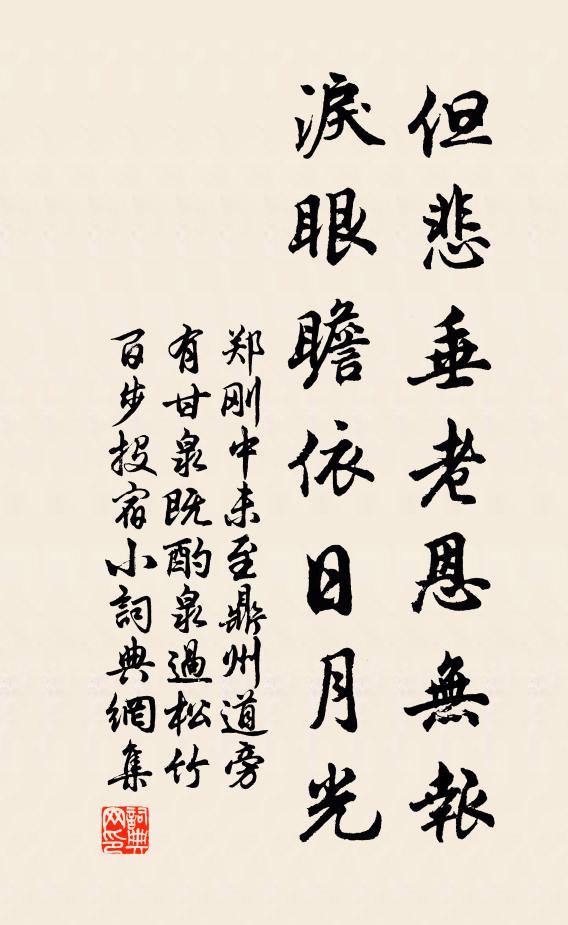 但悲垂老恩無報
淚眼瞻依日月光
郑刚中未至鼎州道旁
有甘泉既酌泉過松竹
百步投宿小詞典網集
詞典
网印